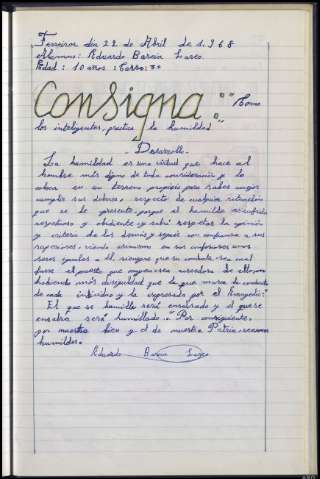 Ferreiros día 22 de Abril de 1.968
Alumno: Eduardo García
Edad: 10 años: Curso: 3º
Consigna: "Como
los inteligentes, practica la humildad"
Desarrollo
La humildad es una virtud que hace al
hombre más digno de toda consideración y lo
coloca en su terreno propicio para saber mejor
cumplir sus deberes, respecto de cualquier situación
que se le presente, porque el humilde es sufrido
respetuoso y obediente y sabe respetar la opinión
y criterio de los demás y seguir con confianza a sus
superiores, viendo asimismo en sus inferiores unos
seres iguales a él, siempre que su conducta, sea cual
fuere el puesto que ocupen sea merecedora de ello, no
habiendo más desigualdad que la que marca la conducta
de cada individuo y la expresada por el Evangelio:
"El que se humilla será ensalzado y el que se
ensalza será humillado." Por consiguiente,
por nuestro bien y el de nuestra Patria, seamos
humildes.
Eduardo García